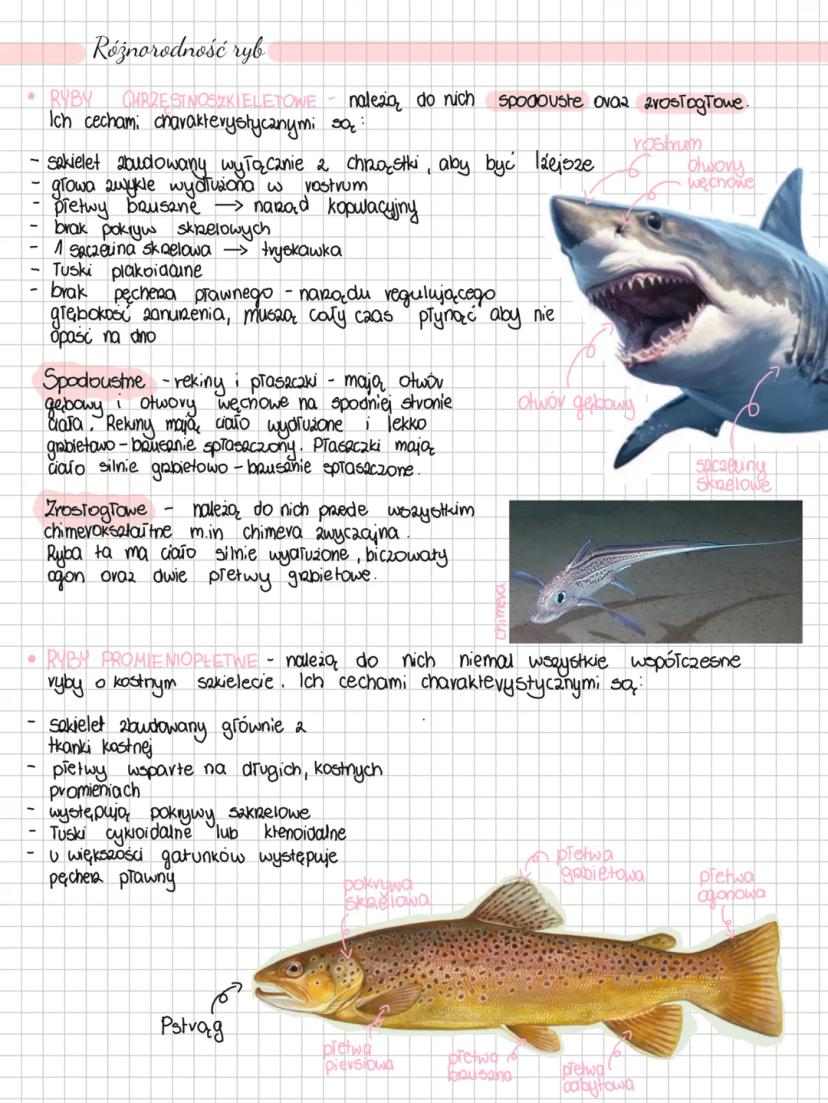 Różnorodność ryb
• RYBY CHRZĘSTNOSZKIELETOWE - należą do nich spodouste oraz zrosłogłowe.
Ich cechami charakterystycznymi są:
- szkielet zbudowany wyłącznie z chrząstki, aby być lżejsze
- głowa zwykle wydłużona w rostrum
- płetwy brzuszne → narząd kopulacyjny
- brak pokryw skrzelowych
- 1 szczelina skrzelowa → tryskawka
- łuski plakoidalne
- brak pęcherza pławnego - narządu regulującego
głębokość zanurzenia, muszą cały czas płynąć aby nie
opaść na dno
rostrum
otwory
węchowe
otwór gębowy
szczeliny
skrzelowe
Spodoustne - rekiny i płaszczki - mają otwór
gębowy i otwory węchowe na spodniej stronie
ciała. Rekiny mają ciało wydłużone i lekko
grzbietowo-brzusznie spłaszczony. Płaszczki mają
ciało silnie grzbietowo-brzusznie spłaszczone.
Zrosłogłowe - należą do nich przede wszystkim
chimerokształtne m.in chimera zwyczajna.
Ryba ta ma ciało silnie wydłużone, biczowaty
ogon oraz dwie płetwy grzbietowe.
chimera
• RYBY PROMIENIOPŁETWE - należą do nich niemal wszystkie współczesne
ryby o kostnym szkielecie. Ich cechami charakterystycznymi są:
- szkielet zbudowany głównie z
tkanki kostnej
- płetwy wsparte na długich, kostnych
promieniach
- występują pokrywy szkrzelowe
- łuski cykloidalne lub ktenoidalne
- u większości gatunków występuje
pęcherz pławny
pokrywa
skrzelowa
płetwa
grzbietowa
płetwa
ogonowa
Pstrąg
płetwa
piersiowa
płetwa
brzuszna
płetwa
odbytowa